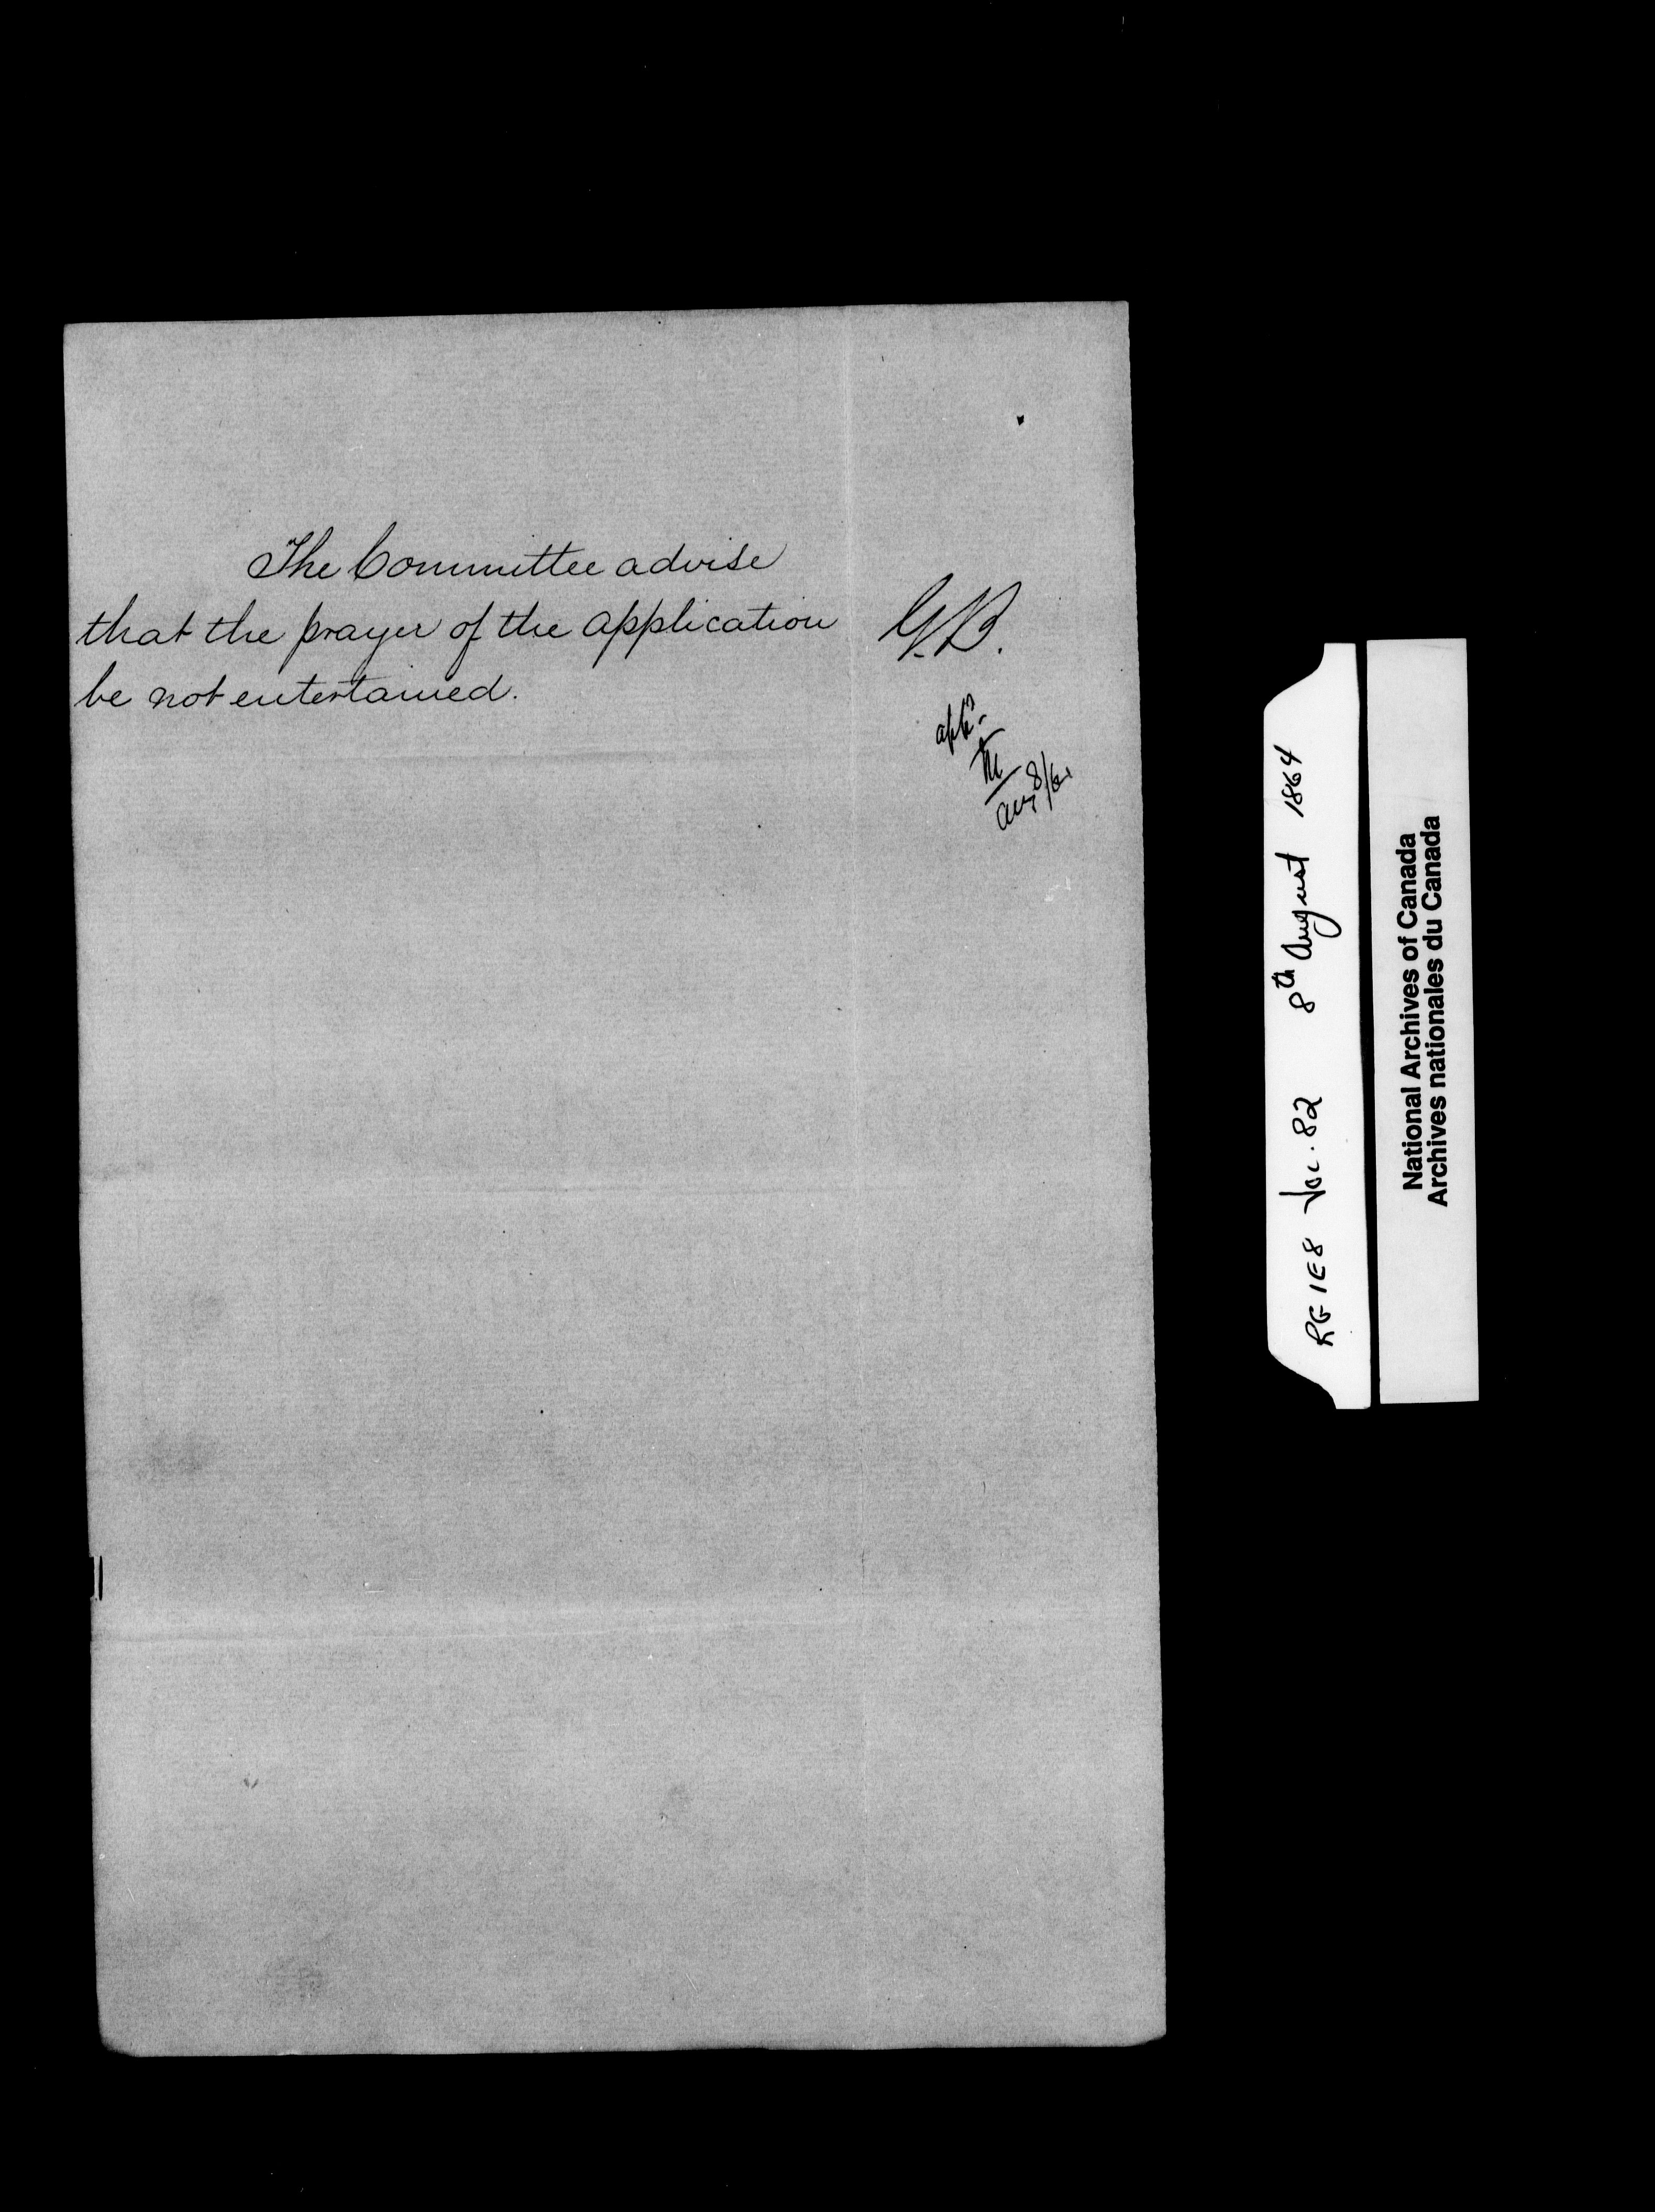 The Committee advise
that the prayer of the application
be not entertained.
G.B.
Aug 8/64
RG 1 E8 Vol. 82 8th August 1864
National Archives of Canada
Archives nationales du Canada